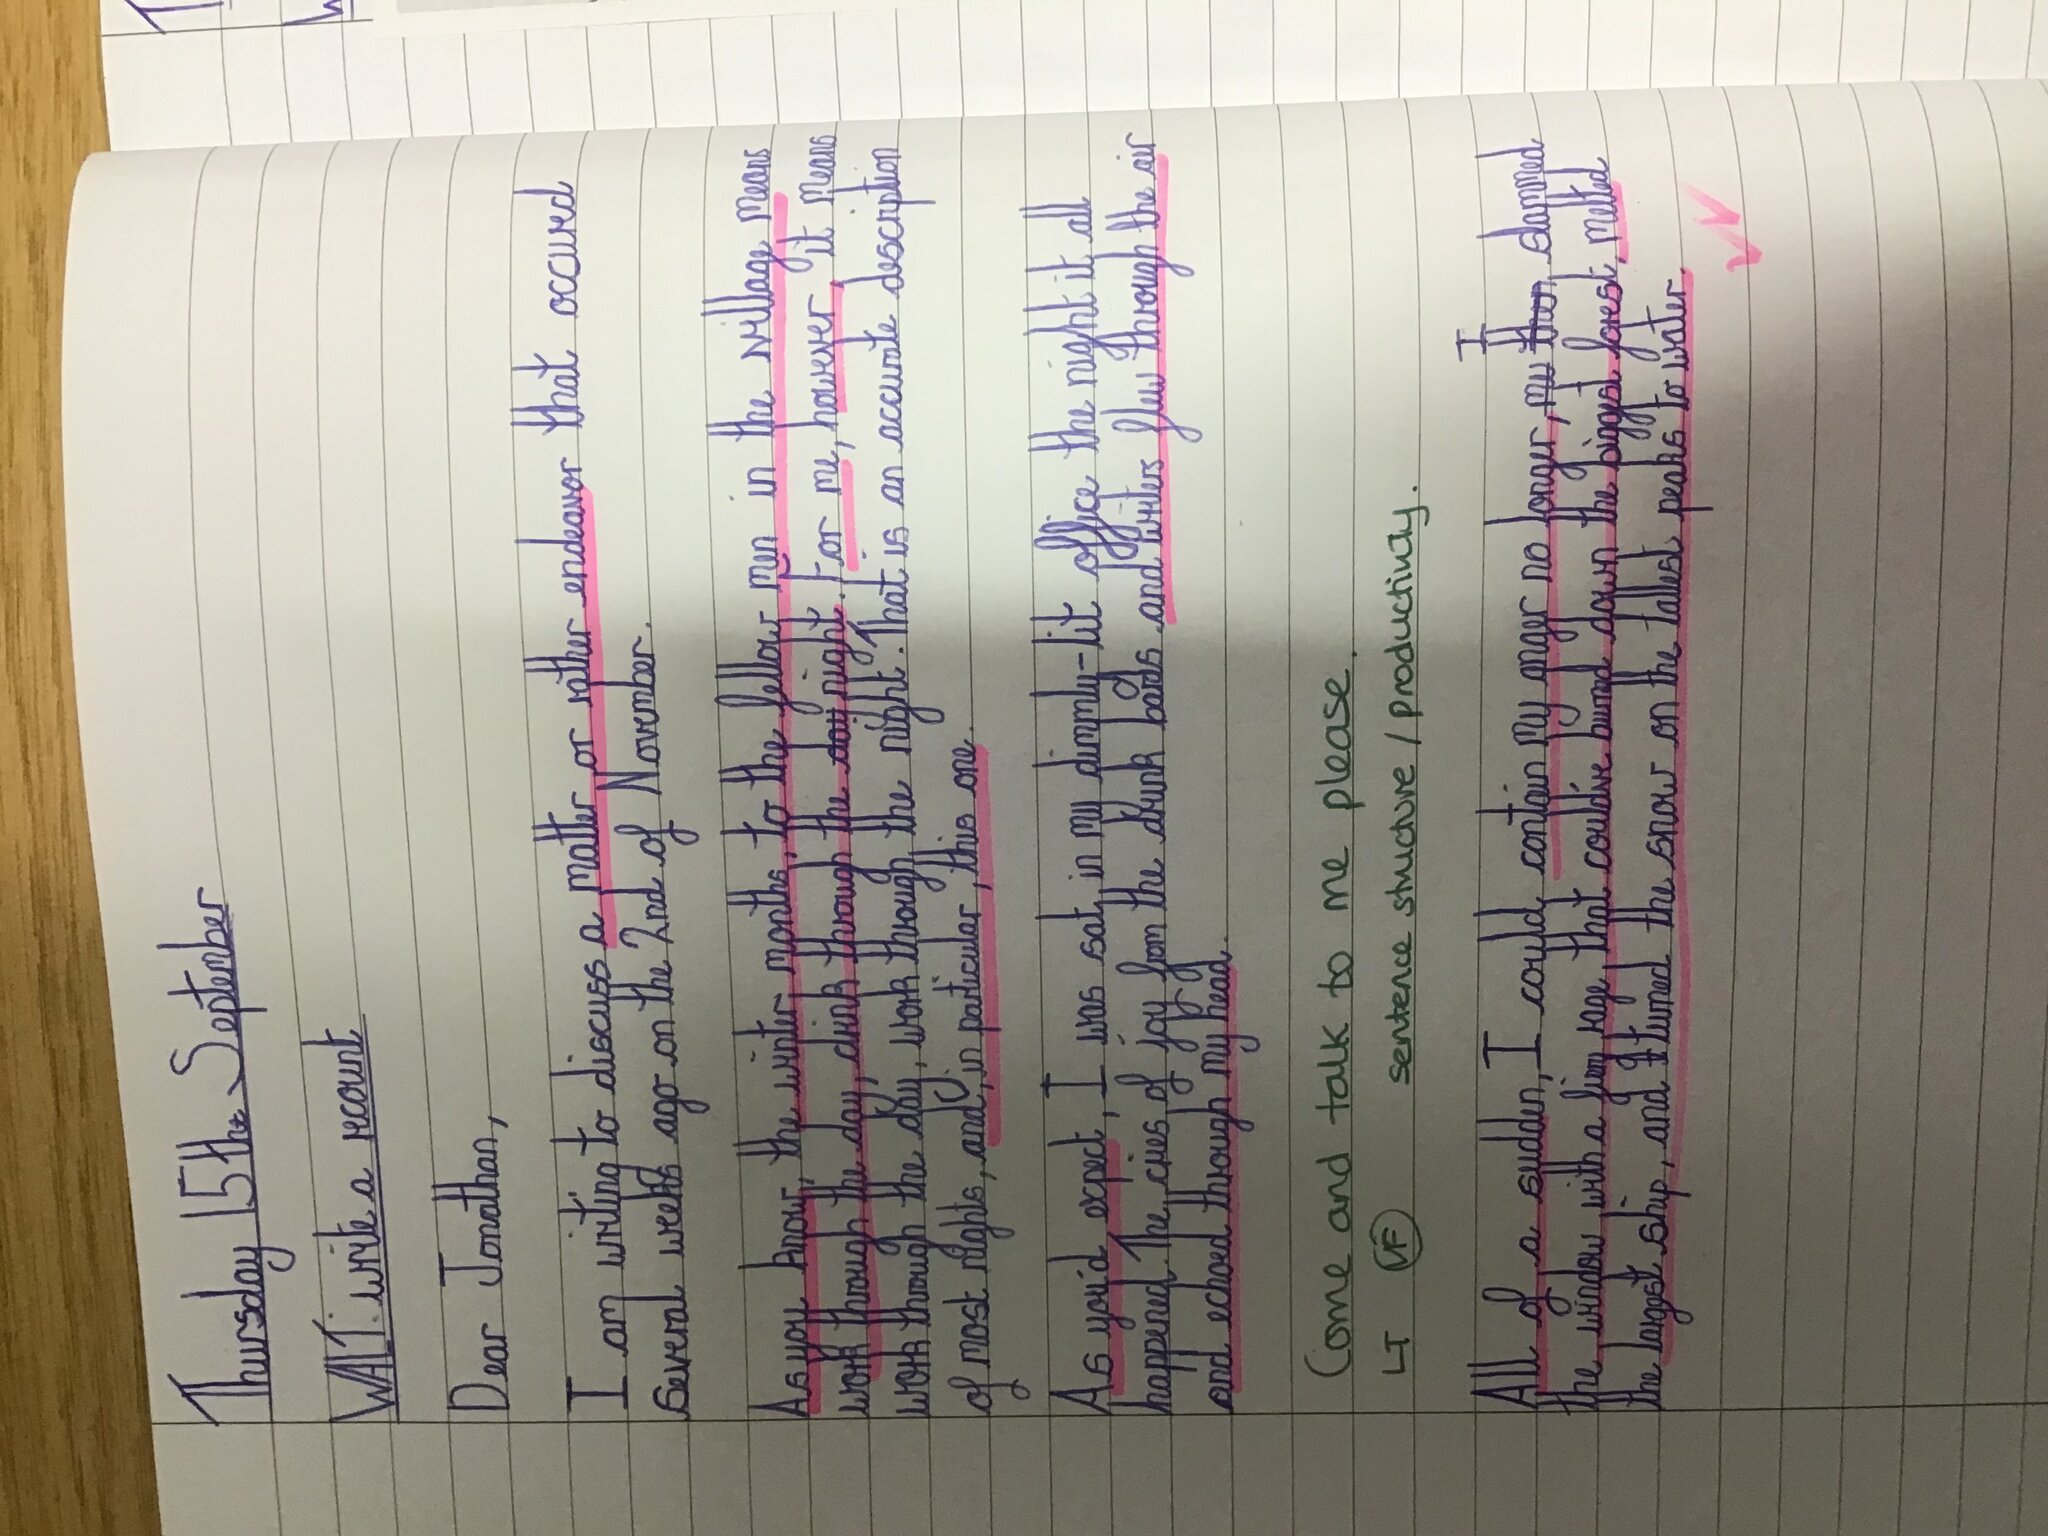 Thursday 15th September
WALT: write a recount
Dear Jonathan,
I am writing to discuss a matter or rather endeavor that occured
several weeks ago on the 2nd of November.
As you know, the winter months, to the fellow men in the village means
work through the day, drink through the day night. For me, however, it means
work through the day, work through the night. That is an accurate description
of most nights, and, in particular, this one.
As you'd expect, I was sat in my dimmly-lit office the night it all
happened. The cries of joy from the drunk bards and writers flew through the air
and echoed through my head.
Come and talk to me please.
LT VF sentence structure / productivity.
I
All of a sudden, I could contain my anger no longer, slammed
the window with a fiery rage that could've burned down the biggest forest, melted
the largest ship, and turned the snow on the tallest peaks to water.